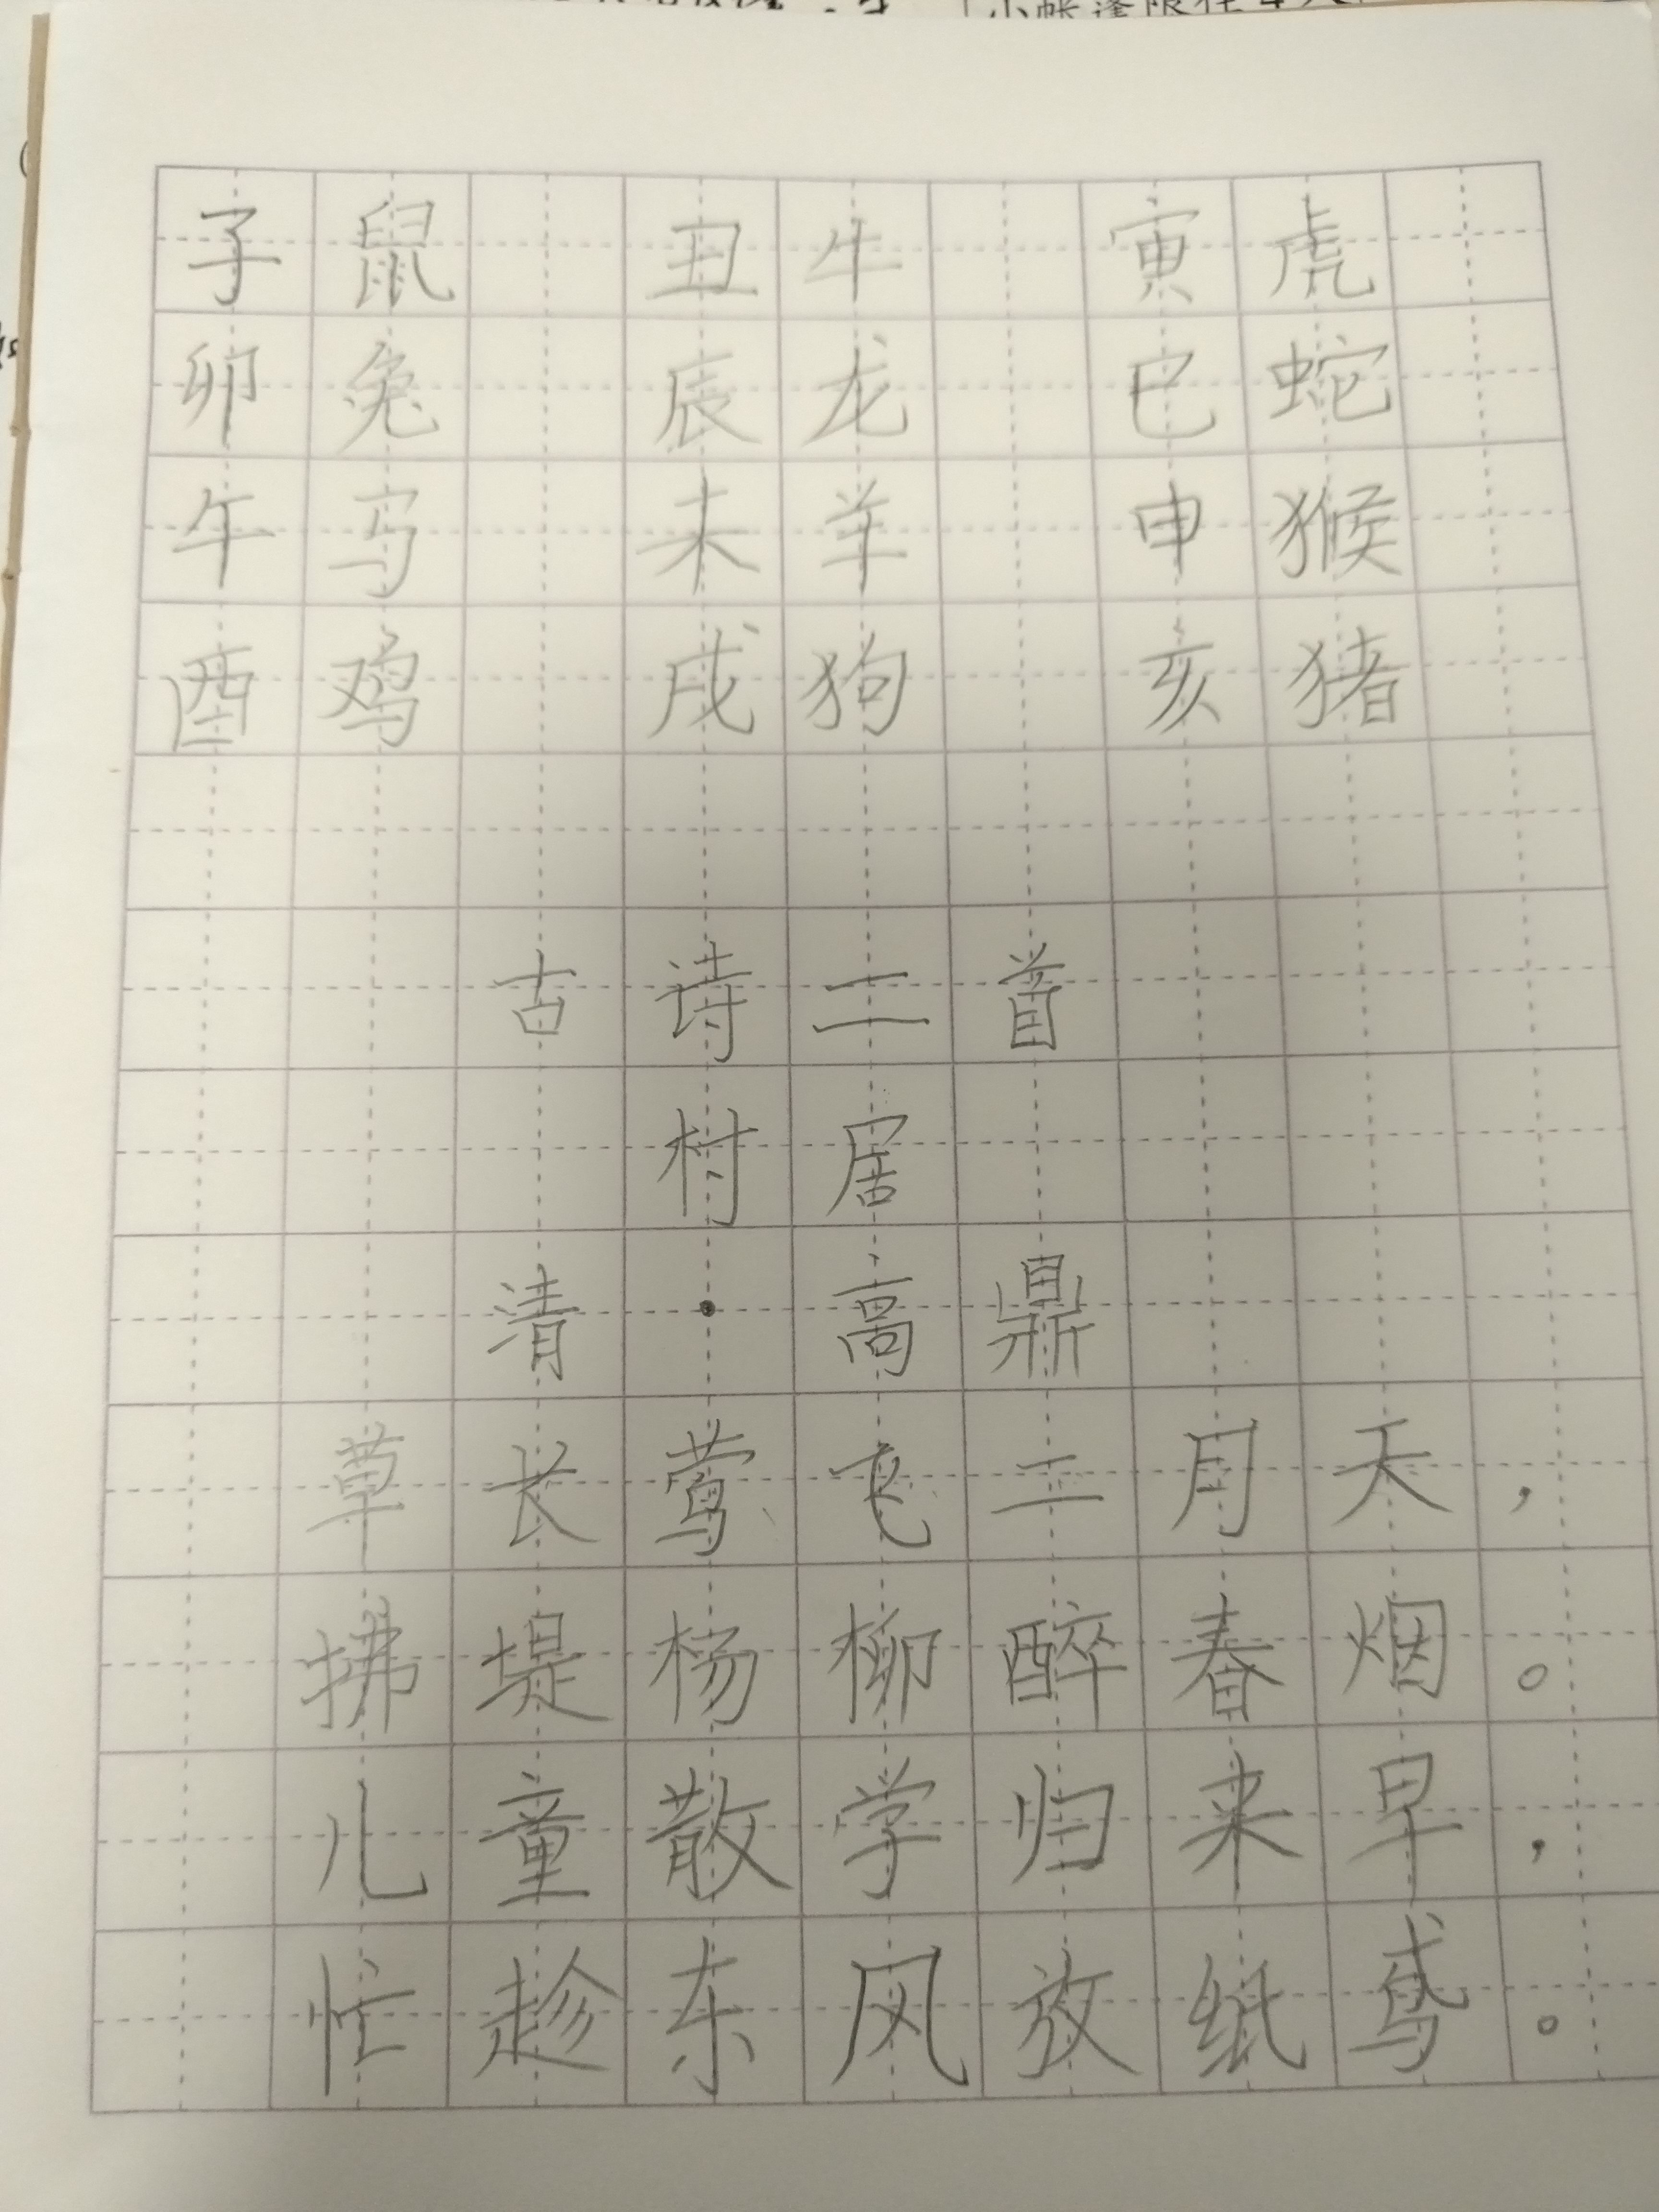 子鼠 丑牛 寅虎
卯兔 辰龙 巳蛇
午马 未羊 申猴
酉鸡 戌狗 亥猪
古诗二首
村居
清·高鼎
草长莺飞二月天，
拂堤杨柳醉春烟。
儿童散学归来早，
忙趁东风放纸鸢。